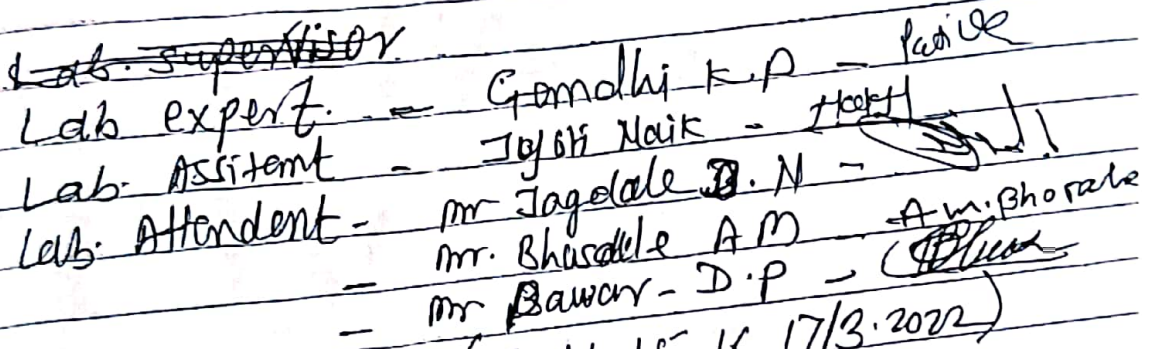 Lab. Supervisor
Lab expert. - Gandhi K.P -
Lab. Assitemt - Jyoti Naik -
Lab. Attendent - Mr Jagdale B. N -
- Mr. Bhasdale A M - A.M. Bhorale
- Mr Bawar - D.P -
17/3.2022)